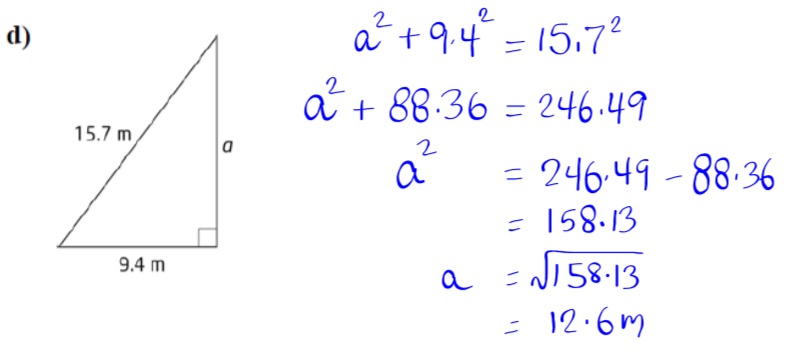 d)
15.7 m
a
9.4 m
a² + 9.4² = 15.7²
a² + 88.36 = 246.49
a² = 246.49 - 88.36
= 158.13
a = √158.13
= 12.6m